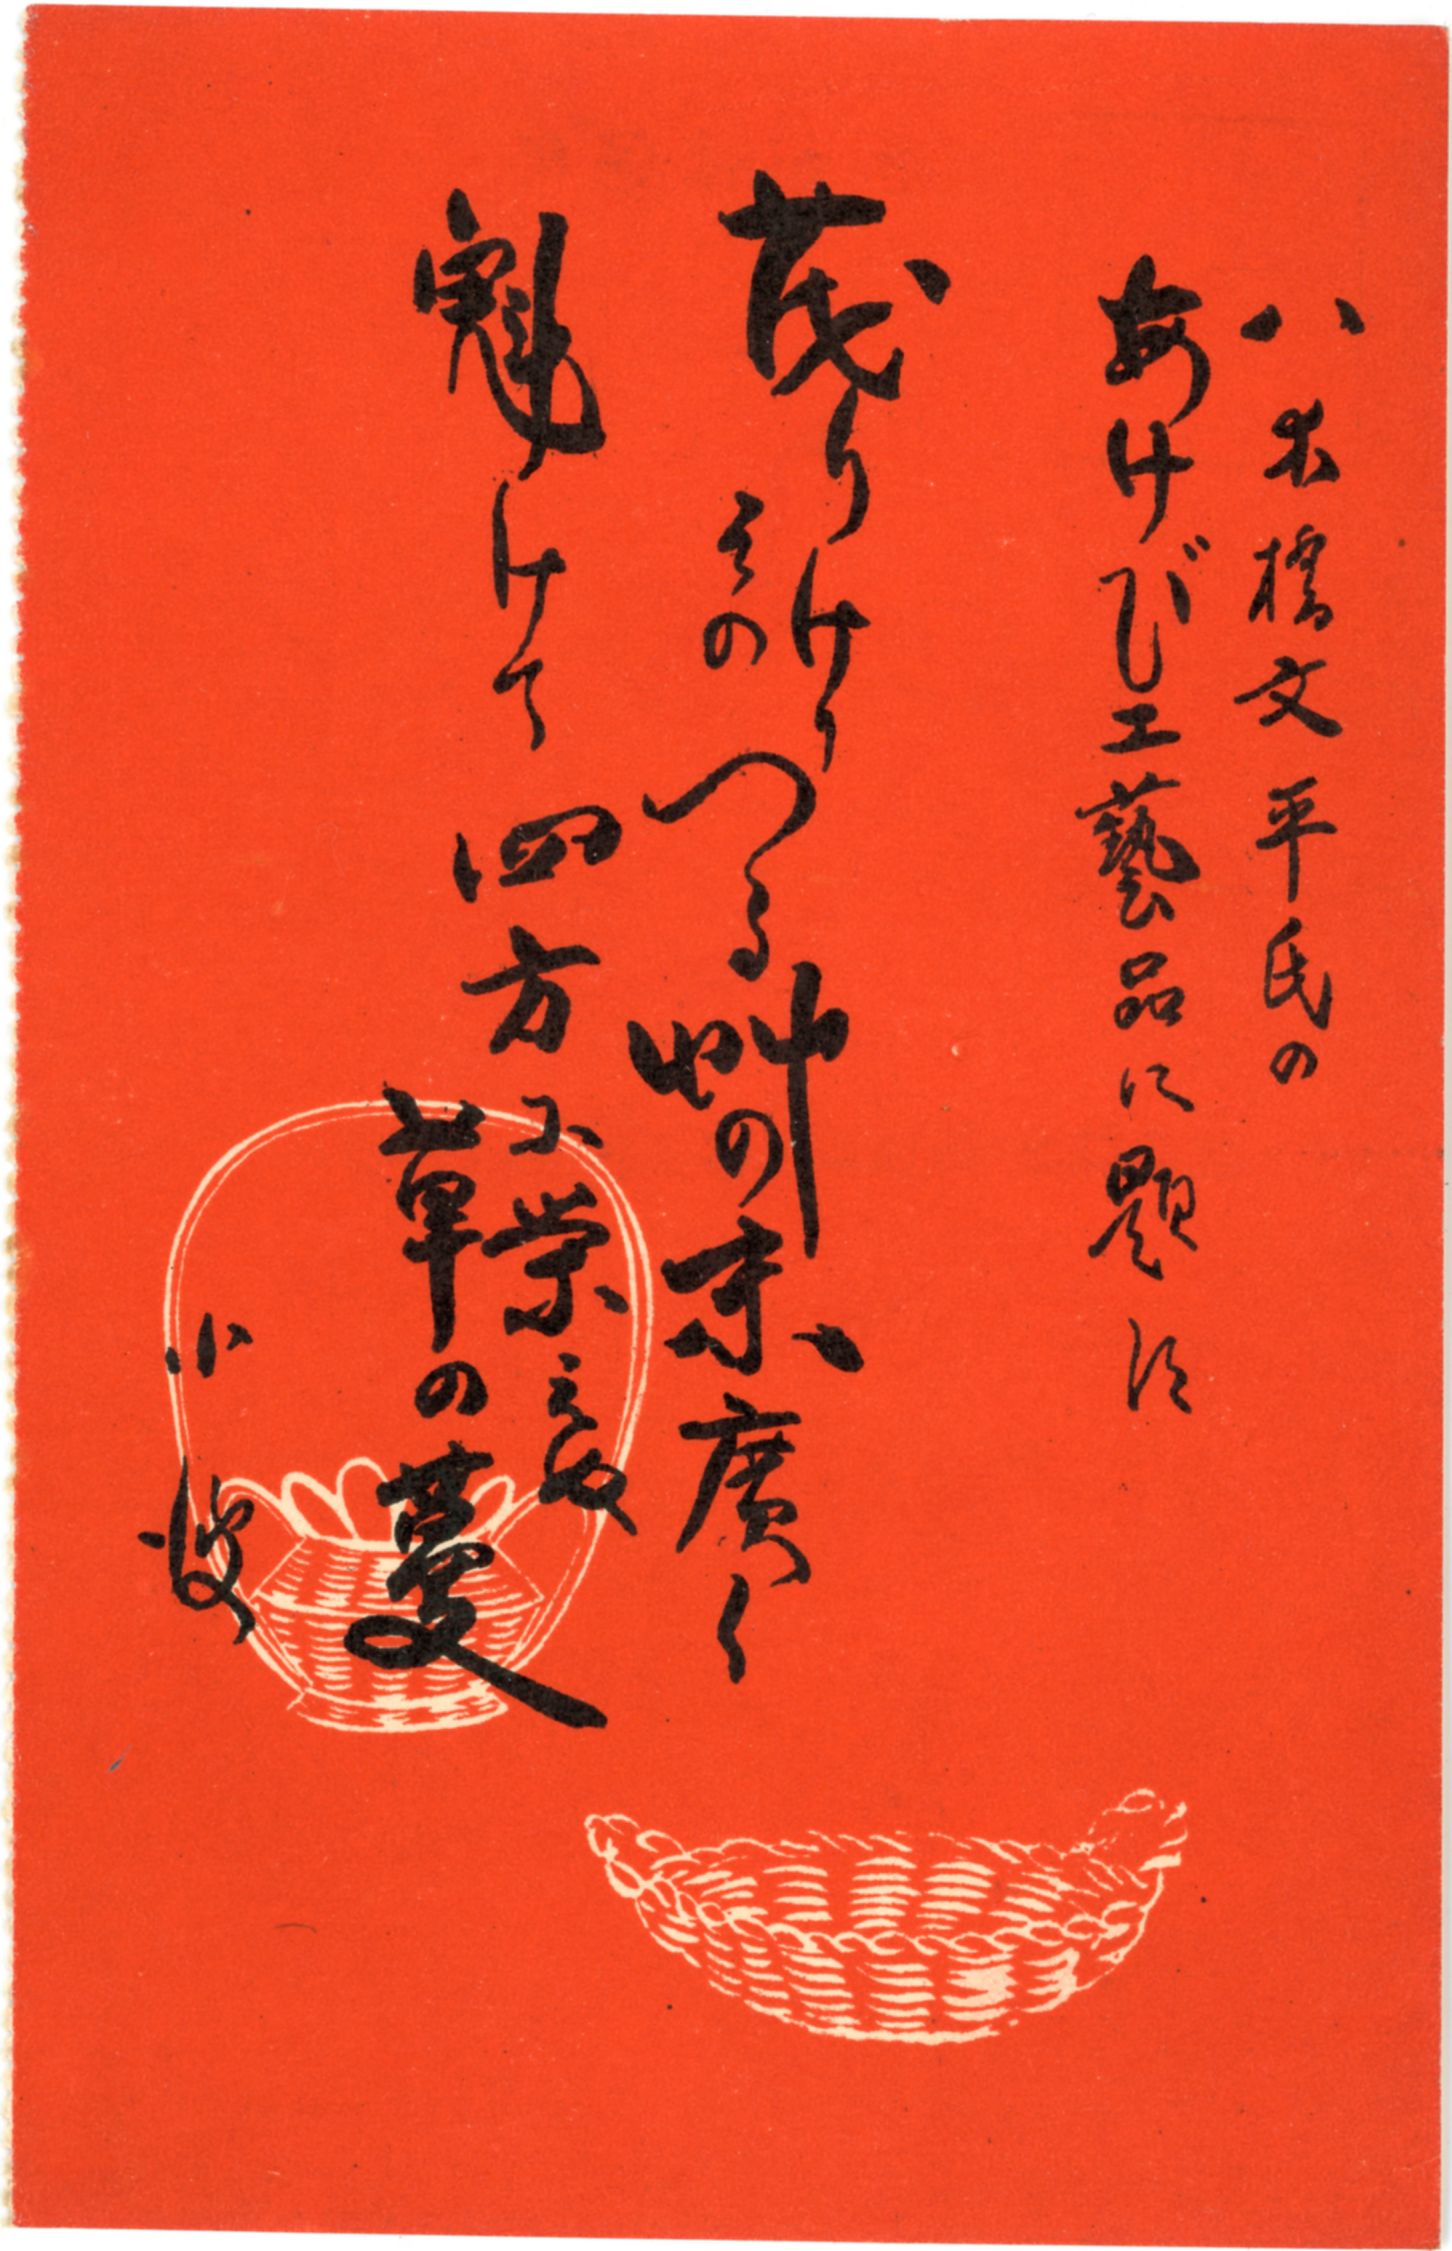 八木橋文平氏の
あけび工藝品に題す
茂りけり
そのつる艸の末廣く
魁けて四方に榮えぬ
草の蔓
小波